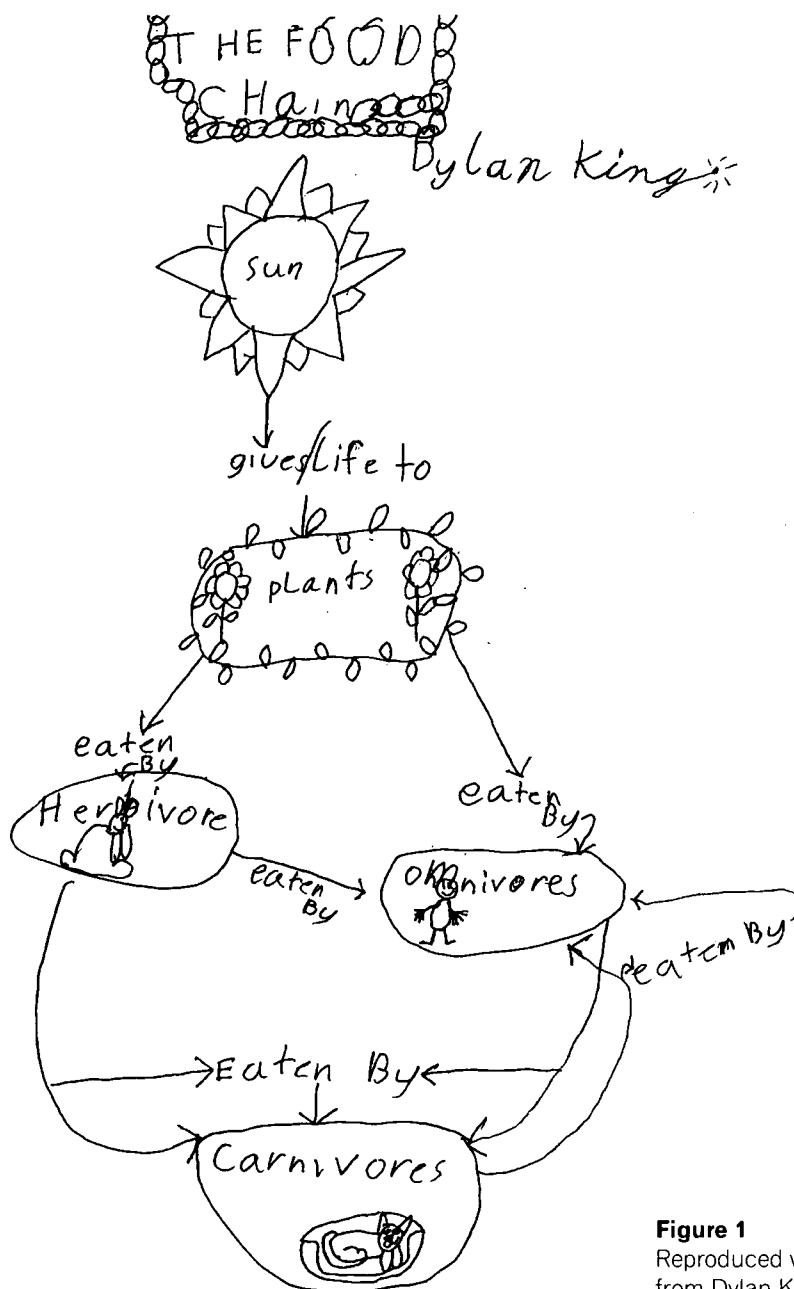 THE FOOD
CHain
Dylan King
sun
gives life to
plants
eaten
By
Herbivore
eaten
By
eaten
By
omnivores
eatem By
Eaten By
Carnivores
Figure 1
Reproduced
from Dylan K